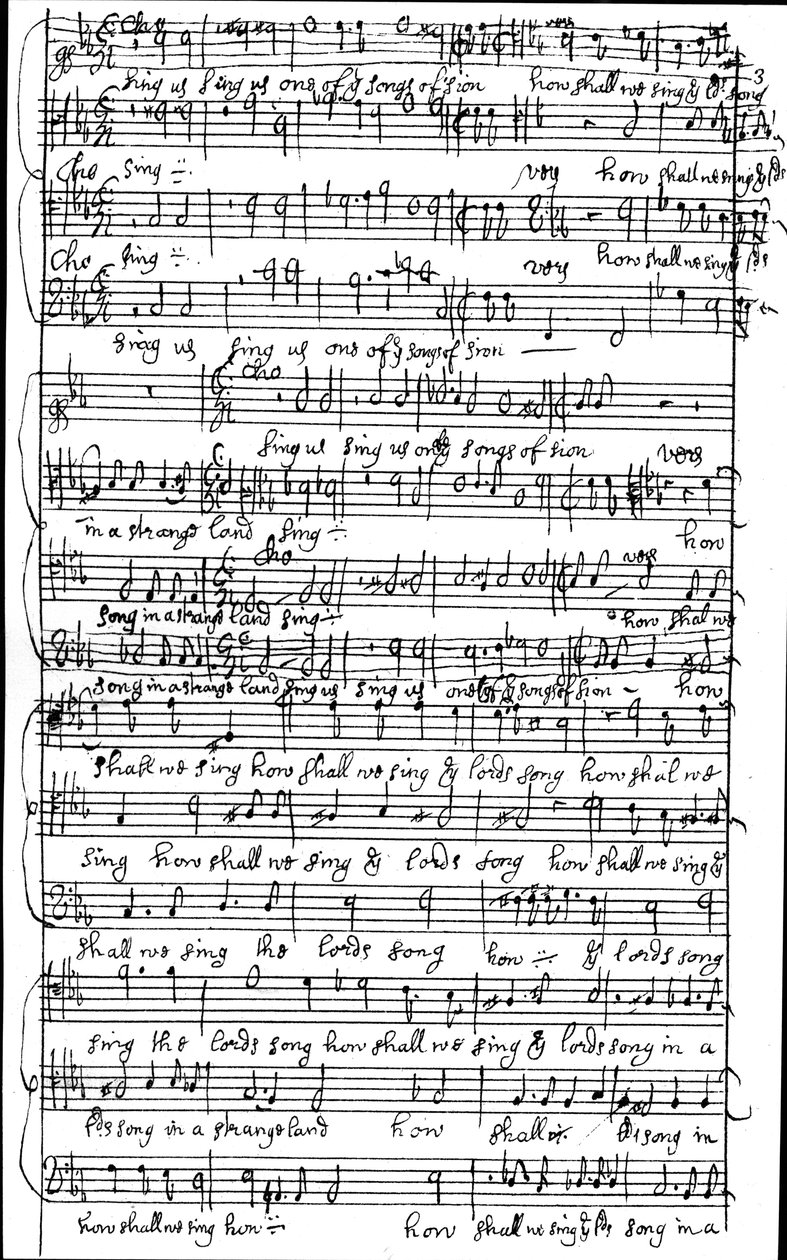 Cho vers
sing us sing us one of yͤ songs of sion how shall we sing yͤ lds song
3
Cho sing ÷ vers how shall we sing yͤ lds
Cho sing ÷ vers how shall we sing yͤ lds
sing us sing us one of yͤ songs of sion
Cho
sing us sing us one yͤ songs of sion vers
in a strange land sing ÷ how
Cho vers
song in a strange land sing ÷ how shal we
song in a strange land sing us sing us one of yͤ songs of sion how
shall we sing how shall we sing yͤ lords song how shal we
sing how shall we sing yͤ lords song how shall we sing yͤ
shall we sing the lords song how ÷ yͤ lords song
sing the lords song how shall we sing yͤ lords song in a
lds song in a strange land how shall lds song in
how shall we sing how ÷ how shall we sing yͤ lds song in a